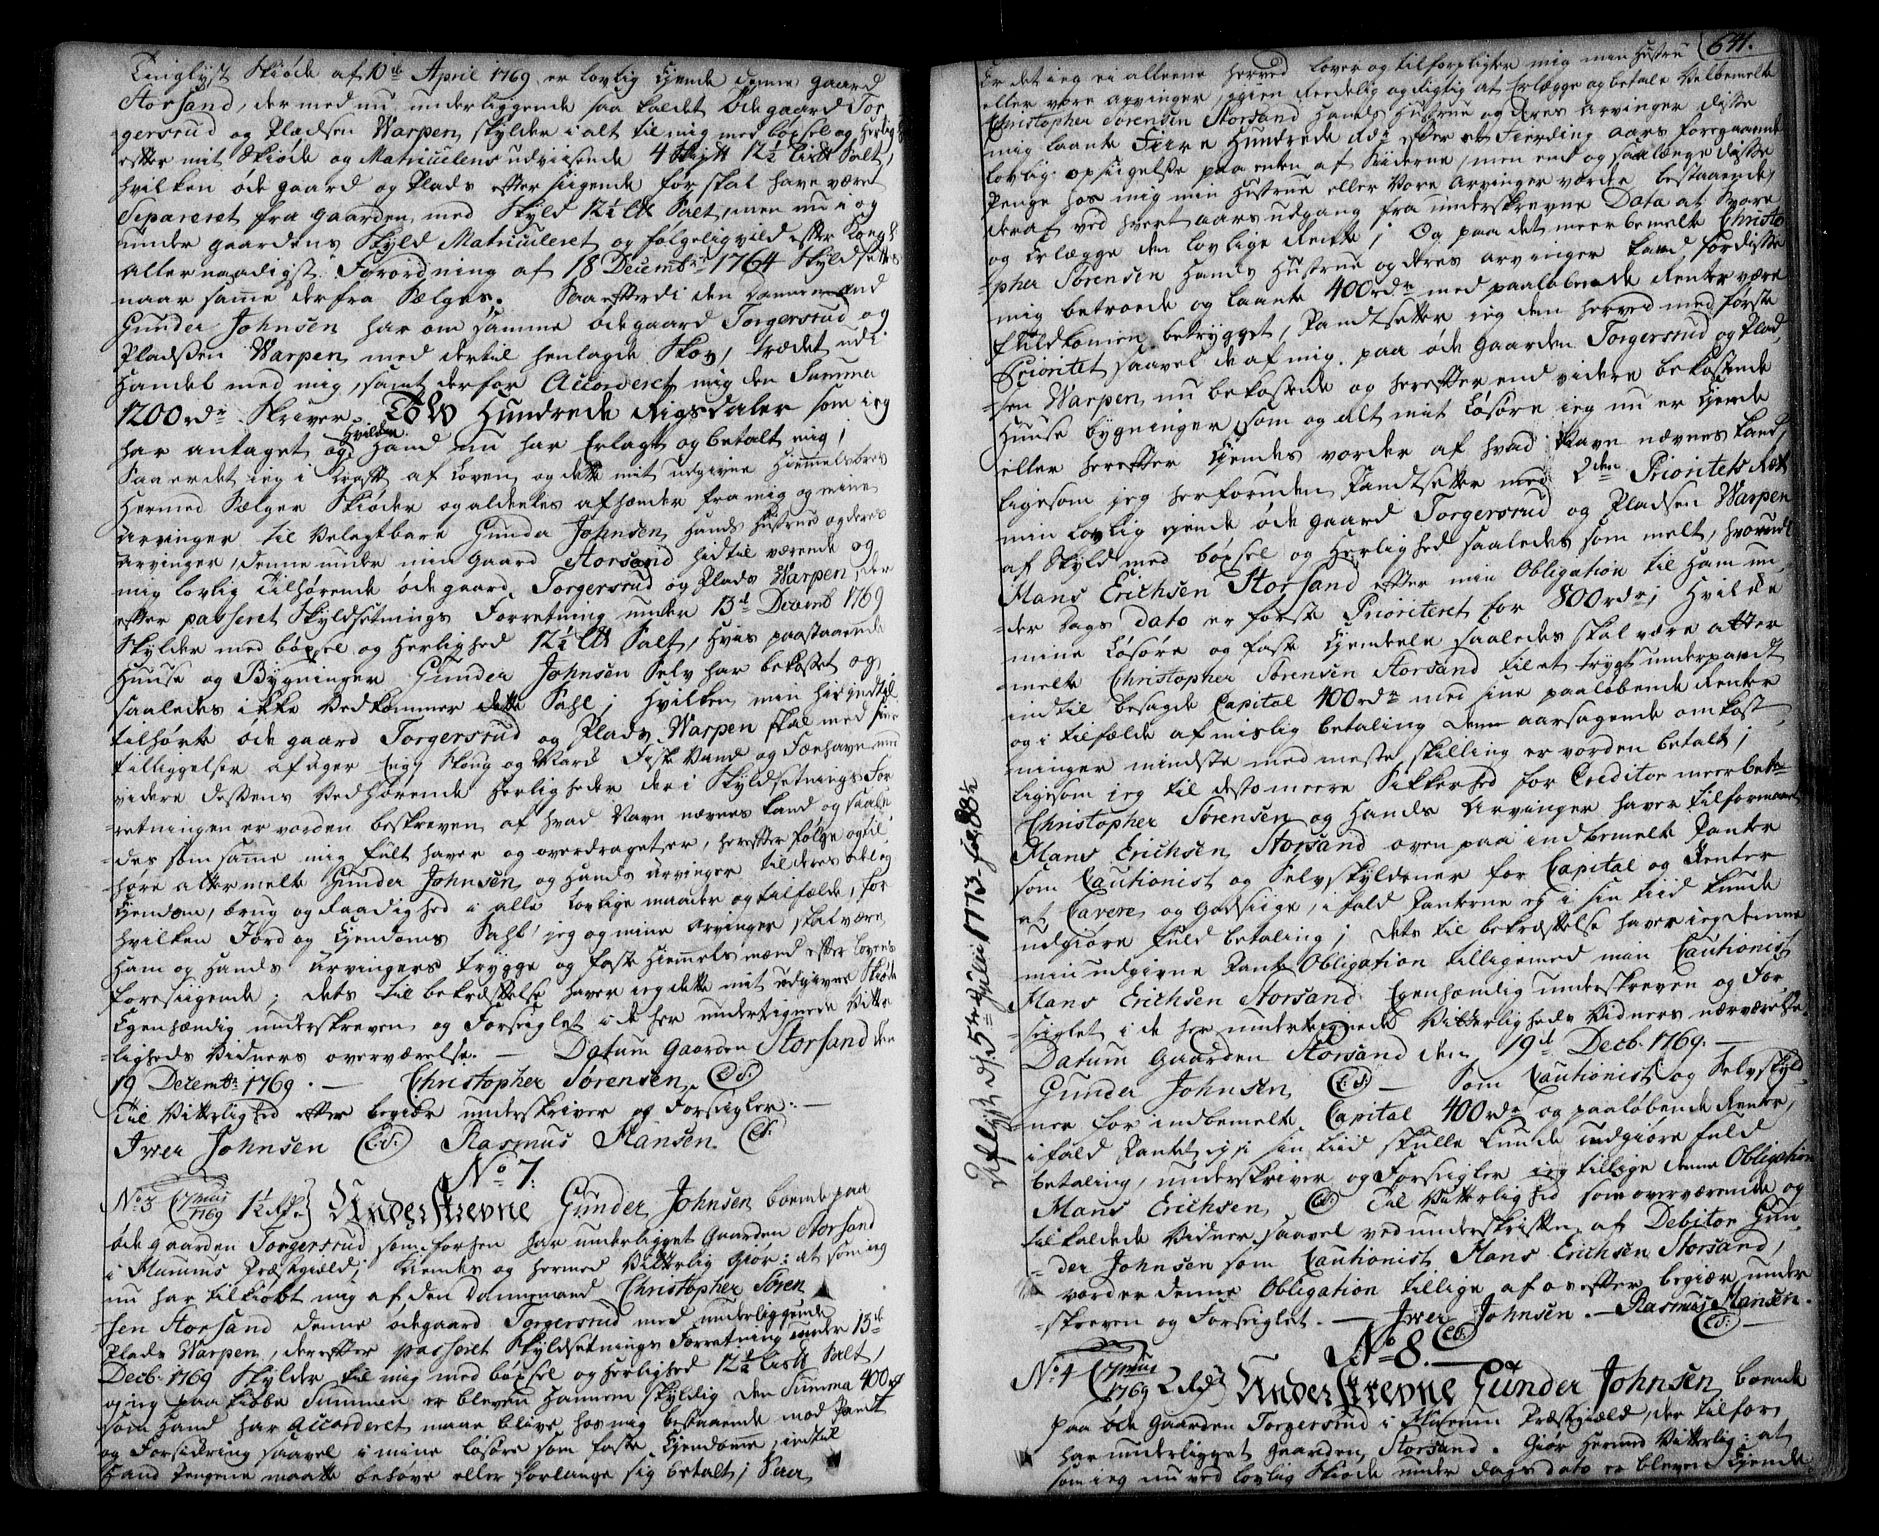 Tinglyst Skiøde af 10de April 1769 er lovlig Ejende denne gaard
Storsand, der med nu underliggende saa kaldet Ødegaard Tor
gersrud og Pladsen Warpen, skylder i alt til mig med bøxsel og herlighed
efter mit Skiøde og Matriculens udviisende 4 12½ Salt,
hvilken øde gaard og Plads efter sigende før skal have været
Separeret fra gaarden med Skyld 12½ L℔ Salt, men nu er og
under gaardens Skyld Matriculeret og følgelig vild efter Kongl
Allernaadigst Forordning af 18 Decembr 1764 Skyldsættes
naar samme derfra Sælges. Saa efterdi den Dannemand
Gunder Johnsen har om samme ødegaard Torgersrud og
Pladsen Warpen med dertil henlagde Skov, trædet udi
Handel med mig, samt derfor Accorderet mig den Summa
1200 rdr Skriver Tolv Hundrede Rigsdaler som ieg
har antaget og hvilken hand nu har Erlagt og betalt mig;
Saa er det ieg i kraft af Loven og dette mit udgivne Hiemmelsbrev
hermed Sælger Skiøder og aldeeles afhænder fra mig og mine
Arvinger til Velagtbare Gunder Johnsen, hands Hustrue og deres
Arvinger, denne under min Gaard Storsand hidtil værende og
mig lovlig Tilhørende øde gaard Torgersrud og Plads Warpen, der
efter passeret Skyldsetnings Forretning under 13de Decemb 1769
Skylder med bøxsel og herlighed 12½ L℔ Salt, hvis paastaaende
Huuse og Bygninger Gunder Johnsen Selv har bekostet og
saaledes ikke vedkommer dette Sahl; hvilken min hidindtil
tilhørte øde gaard Torgersrud og Plads Warpen skal med sine
tilliggelser af ager Eng Skoug og Mark Fiske Vand og Fæehavn med
videre dessens Vedhørende herligheder der i Skyldsetnings For
retningen er vorden beskreven af hvad Navn nævnes kand og saale
des som samme mig fult haver og overdraget er, herefter følge og til
høre attermelte Gunder Johnsen og hands Arvinger til deres
Ejendom, brug og Raadighed i alle lovlige maader og tilfælde, for
hvilken Jord og Ejendoms Sahl jeg og mine Arvinger skal være
ham og hands Arvingers trygge og faste Hiemmels mænd efter Lovens
foresigende; Dets til bekræftelse haver ieg dette mit udgivne Skiøde
Egenhændig underskreven og Forseglet i de her undertegnede Vitter
ligheds Vidners overværelse. — Datum Gaarden Storsand den
19 Decembr 1769. — Christopher Sørensen (L:S:)
Til Vitterlighed efter begiær underskriver og Forsegler: —
Iwer Johnsen (L:S:) Rasmus Hansen (L:S:)
No 7.
No 3 17 1769 1½ Underskrevne Gunder Johnsen boende paa
øde gaarden Torgersrud som forhen har underligget Gaarden Storsand
i Hurums Præstegield; Kiendes og hermed Vitterlig giør: at som ieg
nu har tilkiøbt mig af den Dannemand Christopher Søren
sen Storsand denne ødegaard Torgersrud med underliggende
Plads Warpen, der efter passeret Skyldsetnings Forretning under 13de
Decb. 1769 Skylder til mig med bøxsel og herlighed 12½ Salt,
og ieg paa kiøbe Summen er bleven hannem skyldig den Summa 400 rd
som hand har Accorderet maae blive hos mig bestaaende mod Pant
og Forsickring saavel i mine Løsøre som faste Ejendomme, indtil
hand Pengene maatte behøve eller forlange sig betalt; Saa
641.
Er det ieg ei alleene herved lover og tilforpligter mig min Hustrue
eller vore arvinger, igien Redelig og Rigtig at Erlægge og betale Velbemelte
Christopher Sørensen Storsand hands Hustrue og deres Arvinger disse
mig laante Fiire Hundrede Rdr efter et Fierding aars foregaaende
lovlig opsigelse paa enten af Siiderne, men end og saalænge disse
Penge hos mig min Hustrue eller Vore Arvinger vorde bestaaende,
deraf ved hvert aars udgang fra underskrevne Data at Svare
og Erlægge den lovlige Rente; Og paa det meerbemelte Christo
pher Sørensen hands Hustrue og deres arvinger kand for disse
mig betroede og laante 400 rdr med paaløbende Renter være
fuldkommen betrygget, Pandtsetter jeg den herved med første
Prioritet saavel de af mig paa øde Gaarden Torgersrud og Plad
sen Warpen nu bekostede og herefter end videre bekostende
Huuse bygninger, som og alt mit Løsøre ieg nu er Ejende
eller herefter Ejendes vorder af hvad Navn nævnes kand,
ligesom jeg herforuden Pandtsetter med 2den Prioritets Ræt
min lovlig ejende øde gaard Torgersrud og Pladsen Warpen
af Skyld med bøxsel og herlighed saaledes som melt, hvorudi
Hans Erichsen Storsand efter min Obligation til ham un
der Dags dato er første Prioriteret for 800 rdr; hvilke
mine Løsøre og faste Ejendeele saaledes skal være atter
melte Christopher Sørensen Storsand til et trygt underpandt
indtil besagde Capital 400 rdr med sine paaløbende Renter
og i tilfælde af mislig betaling dens aarsagende omkost
ninger mindste med meste skilling er vorden betalt;
ligesom jeg til desto meere Sikkerhed for Creditor meerbete
Christopher Sørensen og hands Arvinger haver tilformaaet
Hans Erichsen Storsand oven paa indbemelte Panter
som Cautionist og Selvskyldener for Capital og Renter
at Cavere og Godsige, i fald Panterne ej i sin tiid kunde
udgiøre fuld betaling; Dets til bekræftelse haver ieg denne
min udgivne Pante Obligation tilligemed min Cautionist
Hans Erichsen Storsand Egenhændig underskreven og For
siglet i de her undertegnede Vitterligheds Vidners nærværelse.
Datum Gaarden Storsand den 19de Decb. 1769. —
Gunder Johnsen (L:S:) — Som Cautionist og Selvskyld
ner for indbemelte Capital 400 rdr og paaløbende Renter,
i fald Pantet ej i sin tiid skulle kunde udgiøre fuld
betaling, underskriver og Forsegler ieg tillige denne Obligation
Hans Erichsen (L:S:) Til Vitterlighed som overværende og
tilkaldede Vidner saavel ved underskriften af Debitor Gun
der Johnsen som Cautionist Hans Erichsen Storsand,
vorder denne Obligation tillige af os efter begiær under
skreven og Forsieglet. — Iwer Johnsen. — Rasmus Hansen.
(L:S:) (L:S:)
No 8.
No 4 17 1769 2 Underskrevne Gunder Johnsen, boende
paa øde Gaarden Torgersrud i Hurum Præstegield, der tilforn
har underligget Gaarden Storsand. Giør hermed Vitterlig: at
som ieg nu ved lovlig Skiøde under dags dato er bleven Ejende
Aflyst d. 5te Julii 1773 fol 88